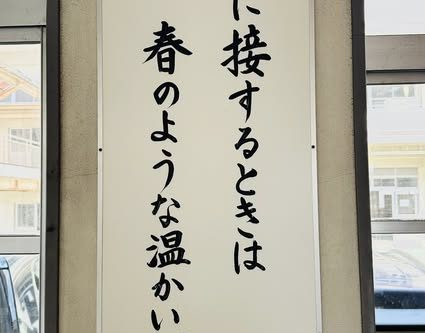 に接するときは
春のような温かい